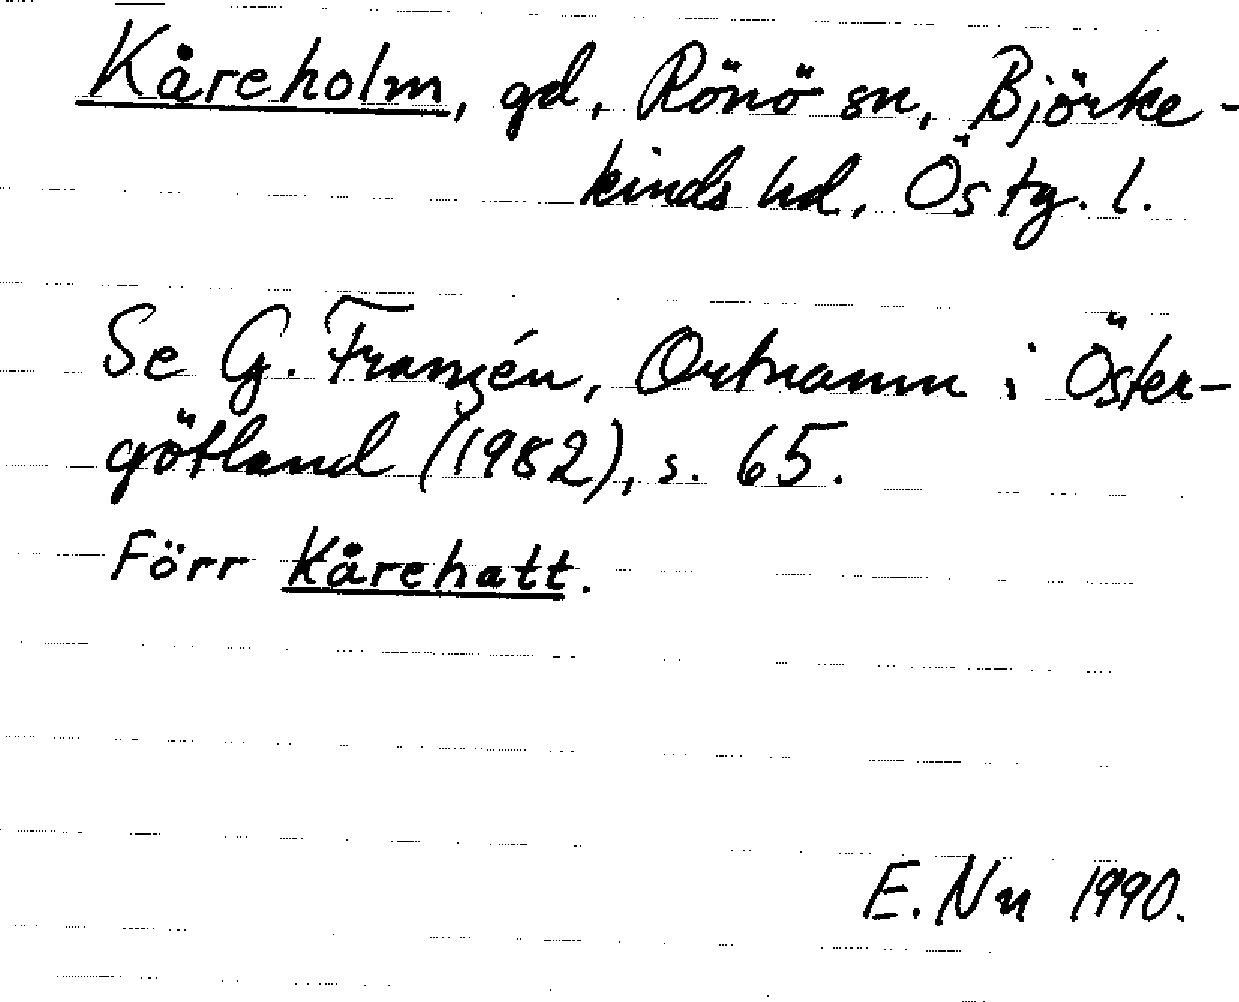 Kåreholm, gd, Rönö sn, Björke-
kinds hd, Östg. l.
Se G. Franzén, Ortnamn i Öster-
götland (1982), s. 65.
Förr Kårehatt.
E. Nn 1990.